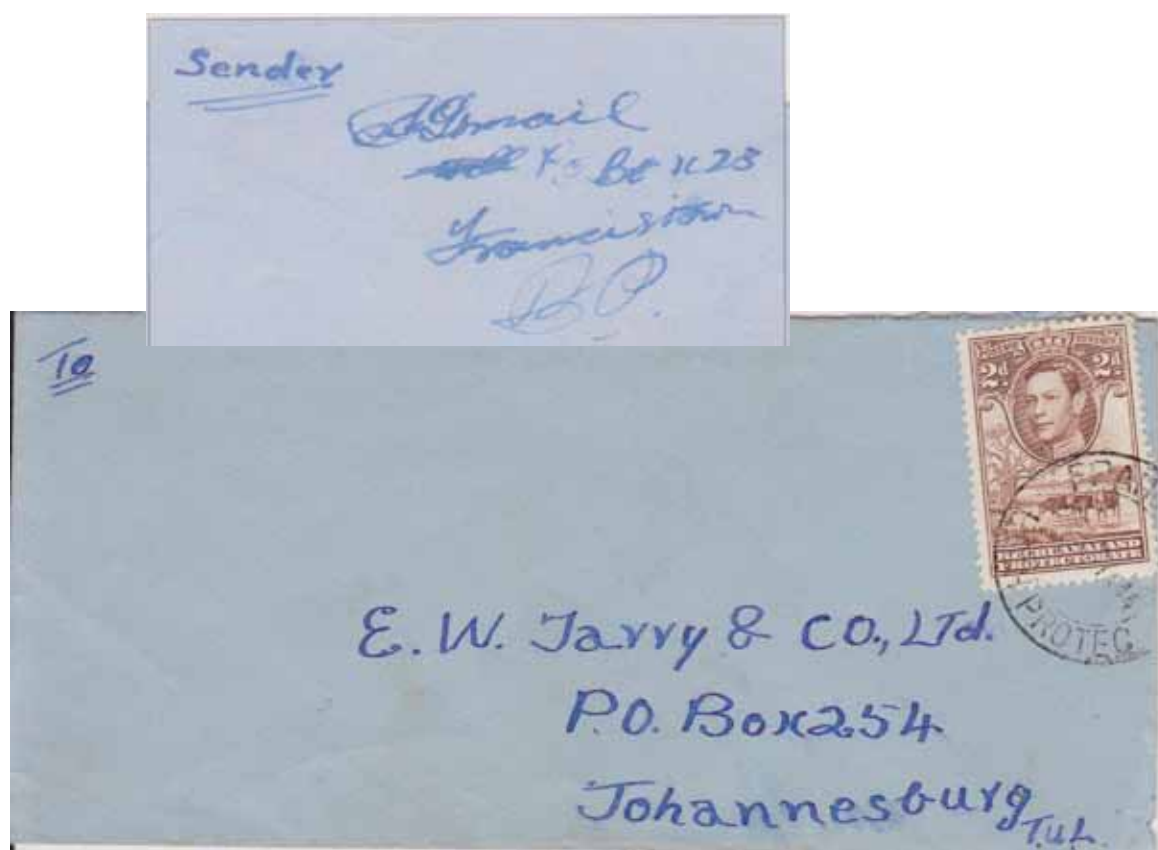 Sender
Ismail
Box 23
Francistown
B.P.
To
2d 2d
BECHUANALAND
PROTEC
E. W. Tarry & CO., LTd.
P.O. Box 254
Johannesburg